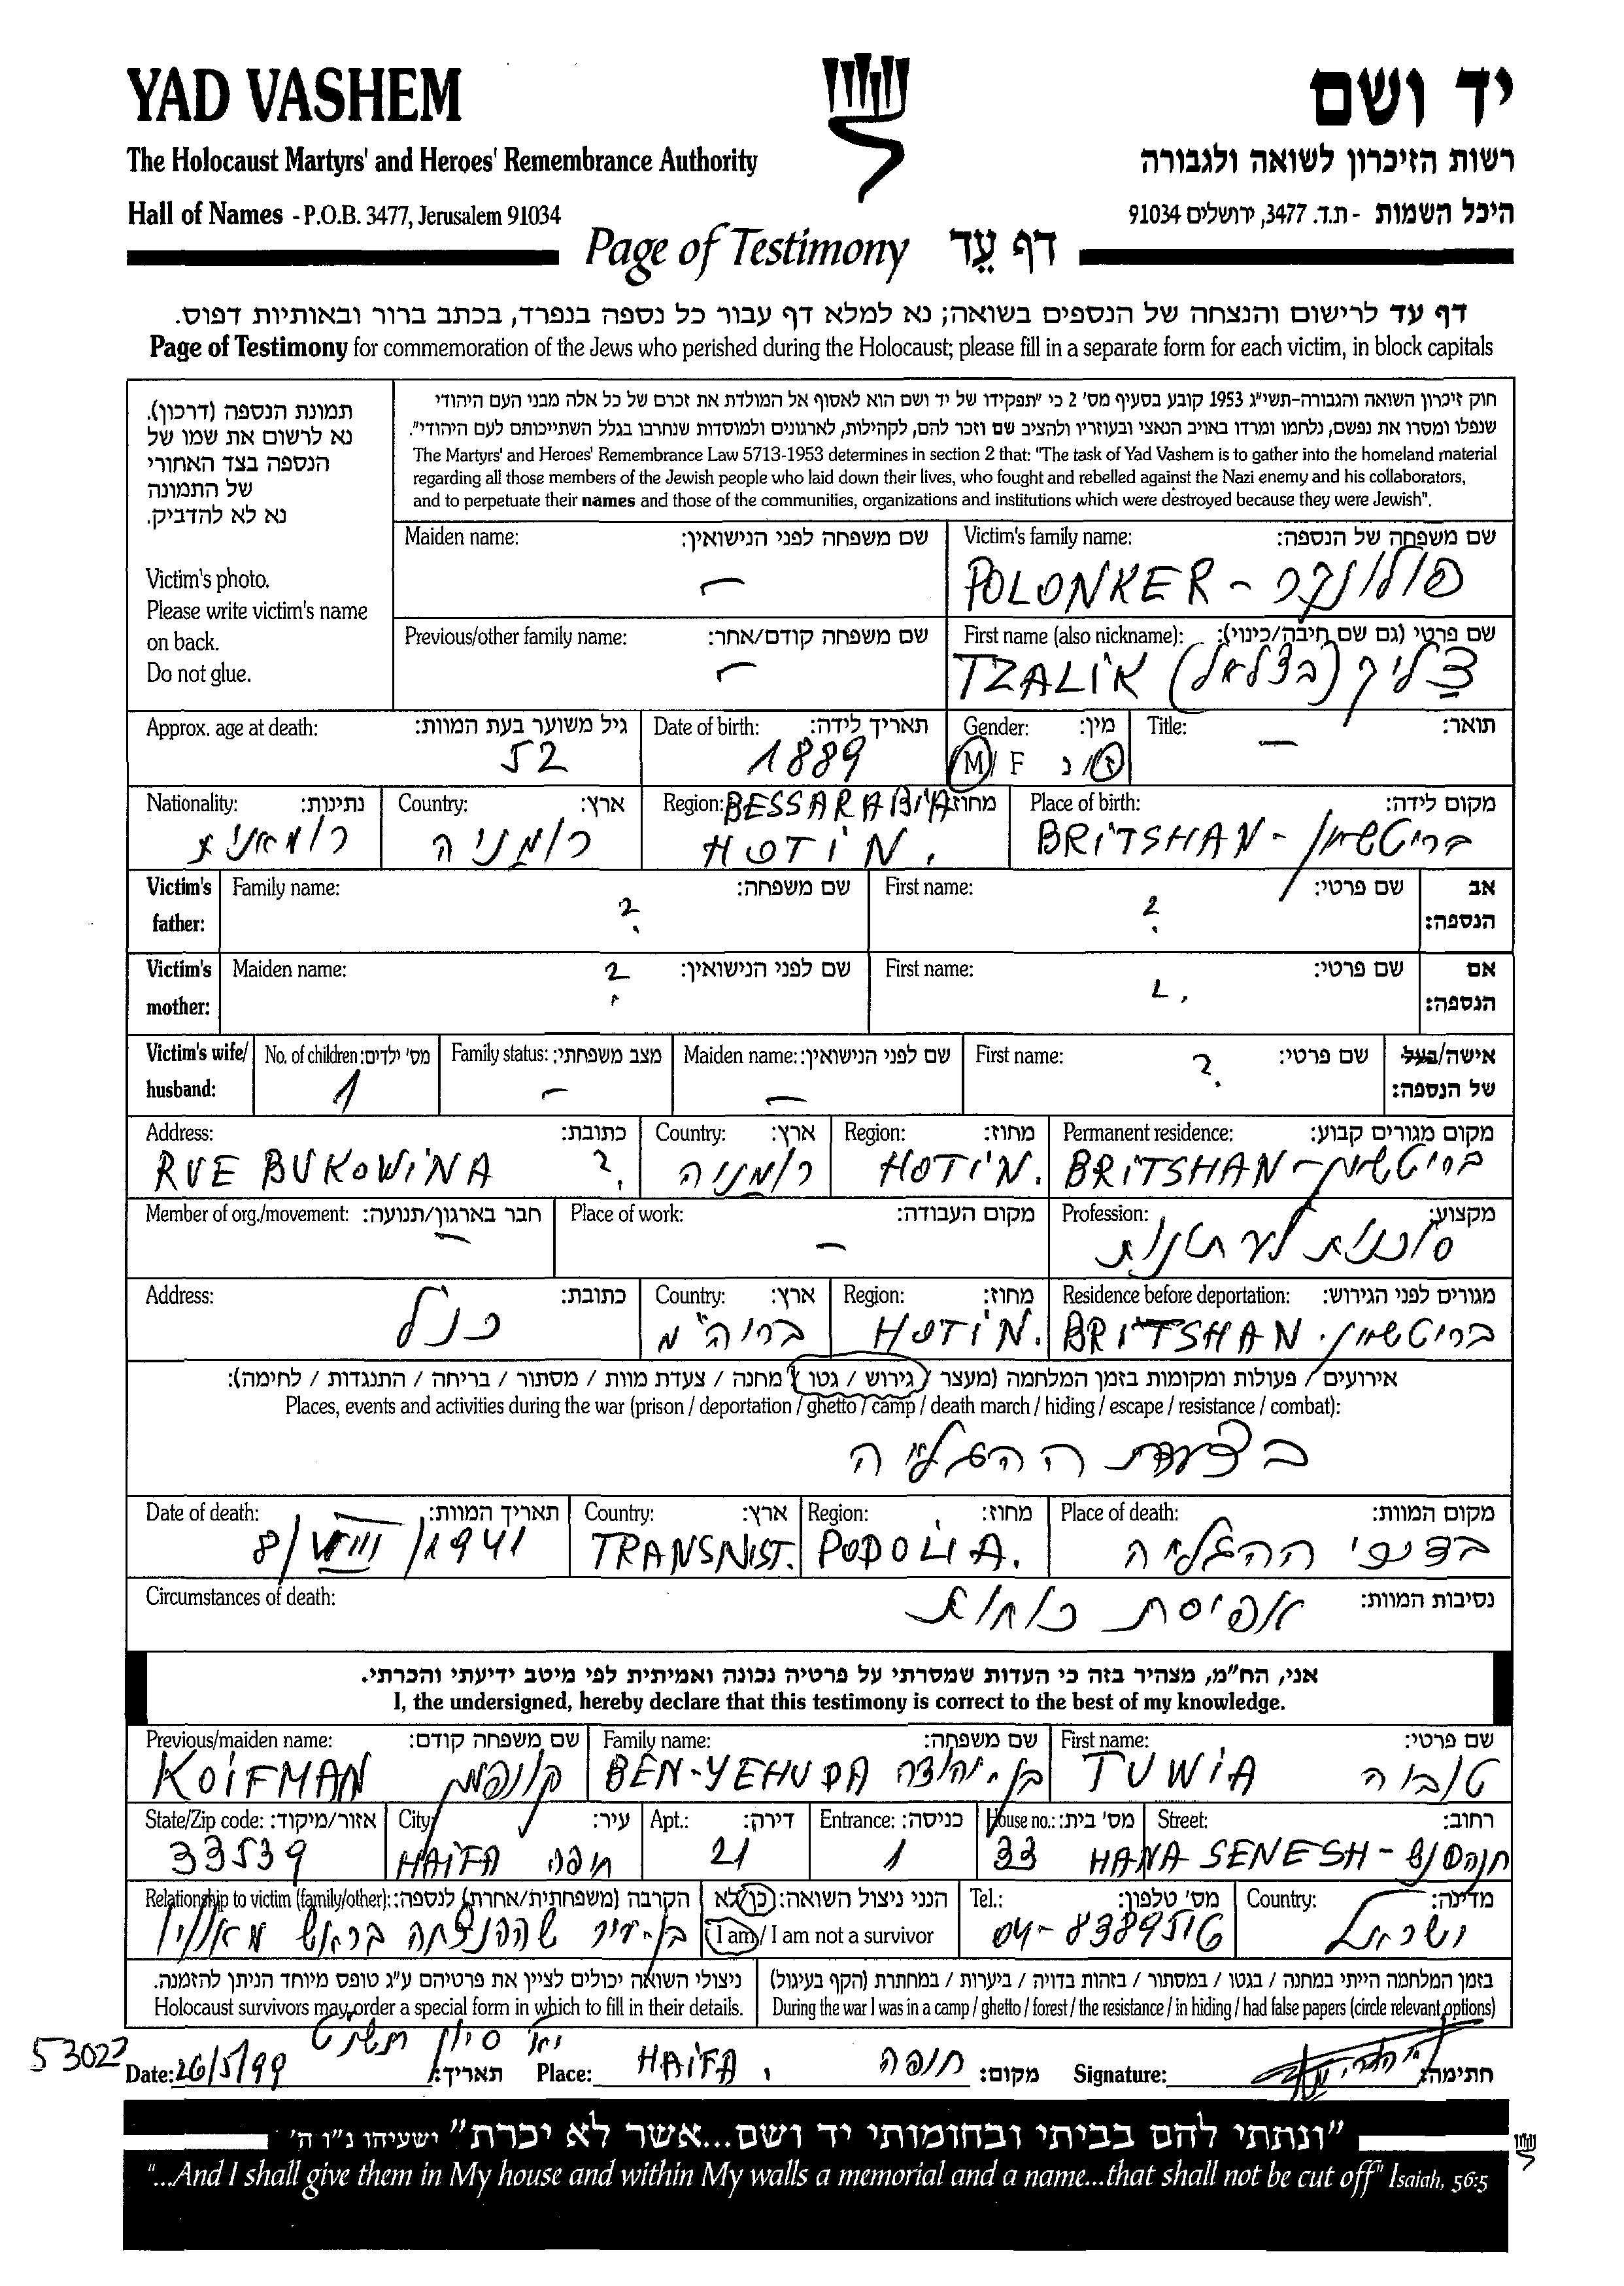 YAD VASHEM
יד ושם
The Holocaust Martyrs' and Heroes' Remembrance Authority
רשות הזיכרון לשואה ולגבורה
Hall of Names - P.O.B. 3477, Jerusalem 91034
היכל השמות - ת.ד. 3477, ירושלים 91034
Page of Testimony דף עֵד
דף עד לרישום והנצחה של הנספים בשואה; נא למלא דף עבור כל נספה בנפרד, בכתב ברור ובאותיות דפוס.
Page of Testimony for commemoration of the Jews who perished during the Holocaust; please fill in a separate form for each victim, in block capitals
תמונת הנספה (דרכון).
נא לרשום את שמו של
הנספה בצד האחורי
של התמונה
נא לא להדביק.
Victim's photo.
Please write victim's name
on back.
Do not glue.
חוק זיכרון השואה והגבורה-תשי"ג 1953 קובע בסעיף מס' 2 כי "תפקידו של יד ושם הוא לאסוף אל המולדת את זכרם של כל אלה מבני העם היהודי
שנפלו ומסרו את נפשם, נלחמו ומרדו באויב הנאצי ובעוזריו ולהציב שם וזכר להם, לקהילות, לארגונים ולמוסדות שנחרבו בגלל השתייכותם לעם היהודי".
The Martyrs' and Heroes' Remembrance Law 5713-1953 determines in section 2 that: "The task of Yad Vashem is to gather into the homeland material
regarding all those members of the Jewish people who laid down their lives, who fought and rebelled against the Nazi enemy and his collaborators,
and to perpetuate their names and those of the communities, organizations and institutions which were destroyed because they were Jewish".
Maiden name: שם משפחה לפני הנישואין: Victim's family name: שם משפחה של הנספה:
– POLONKER - פולונקר
Previous/other family name: שם משפחה קודם/אחר: First name (also nickname): שם פרטי (גם שם חיבה/כינוי):
– TZALIK (בצלאל) צליק
Approx. age at death: גיל משוער בעת המוות: Date of birth: תאריך לידה: Gender: מין: Title: תואר:
52 1889 M/ F ז/ נ –
Nationality: נתינות: Country: ארץ: Region: BESSARABIA מחוז: Place of birth: מקום לידה:
רומאנית רומניה HOTIN. BRITSHAN - בריטשאן
Victim's father: Family name: שם משפחה: First name: שם פרטי: אב הנספה:
? ?
Victim's mother: Maiden name: שם לפני הנישואין: First name: שם פרטי: אם הנספה:
? ?
Victim's wife/ husband: No. of children: מס' ילדים: Family status: מצב משפחתי: Maiden name: שם לפני הנישואין: First name: שם פרטי: אישה/בעל של הנספה:
1 – – ?
Address: כתובת: Country: ארץ: Region: מחוז: Permanent residence: מקום מגורים קבוע:
RUE BUKOWINA ? רומניה HOTIN. BRITSHAN - בריטשאן
Member of org./movement: חבר בארגון/תנועה: Place of work: מקום העבודה: Profession: מקצוע:
– – סוכנות לעתונות
Address: כתובת: Country: ארץ: Region: מחוז: Residence before deportation: מגורים לפני הגירוש:
כנ"ל בריה"מ HOTIN. BRITSHAN. בריטשאן
אירועים / פעולות ומקומות בזמן המלחמה (מעצר / גירוש / גטו / מחנה / צעדת מוות / מסתור / בריחה / התנגדות / לחימה):
Places, events and activities during the war (prison / deportation / ghetto / camp / death march / hiding / escape / resistance / combat):
בצעדת ההגליה
Date of death: תאריך המוות: Country: ארץ: Region: מחוז: Place of death: מקום המוות:
8/VIII/1941 TRANSNIST. PODOLIA. בדרכי ההגליה
Circumstances of death: נסיבות המוות:
אפיסת כוחות
אני, הח"מ, מצהיר בזה כי העדות שמסרתי על פרטיה נכונה ואמיתית לפי מיטב ידיעתי והכרתי.
I, the undersigned, hereby declare that this testimony is correct to the best of my knowledge.
Previous/maiden name: שם משפחה קודם: Family name: שם משפחה: First name: שם פרטי:
KOIFMAN קויפמן BEN-YEHUDA בן-יהודה TUWIA טוביה
State/Zip code: אזור/מיקוד: City: עיר: Apt.: דירה: Entrance: כניסה: House no.: מס' בית: Street: רחוב:
33539 HAIFA חיפה 21 1 33 HANA SENESH - חנה סנש
Relationship to victim (family/other): הקרבה (משפחתית/אחרת) לנספה: הנני ניצול השואה: כן/לא Tel.: מס' טלפון: Country: מדינה:
בן-עיר שההנצחה בראש מאוויו I am / I am not a survivor 04-8389516 ישראל
ניצולי השואה יכולים לציין את פרטיהם ע"ג טופס מיוחד הניתן להזמנה. בזמן המלחמה הייתי במחנה / בגטו / במסתור / בזהות בדויה / ביערות / במחתרת (הקף בעיגול)
Holocaust survivors may order a special form in which to fill in their details. During the war I was in a camp / ghetto / forest / the resistance / in hiding / had false papers (circle relevant options)
יא' סיון תשנ"ט
Date: 26/5/99 תאריך: Place: HAIFA, חיפה מקום: Signature: חתימה:
"ונתתי להם בביתי ובחומותי יד ושם...אשר לא יכרת" ישעיהו נ"ו ה'
"...And I shall give them in My house and within My walls a memorial and a name...that shall not be cut off" Isaiah, 56:5